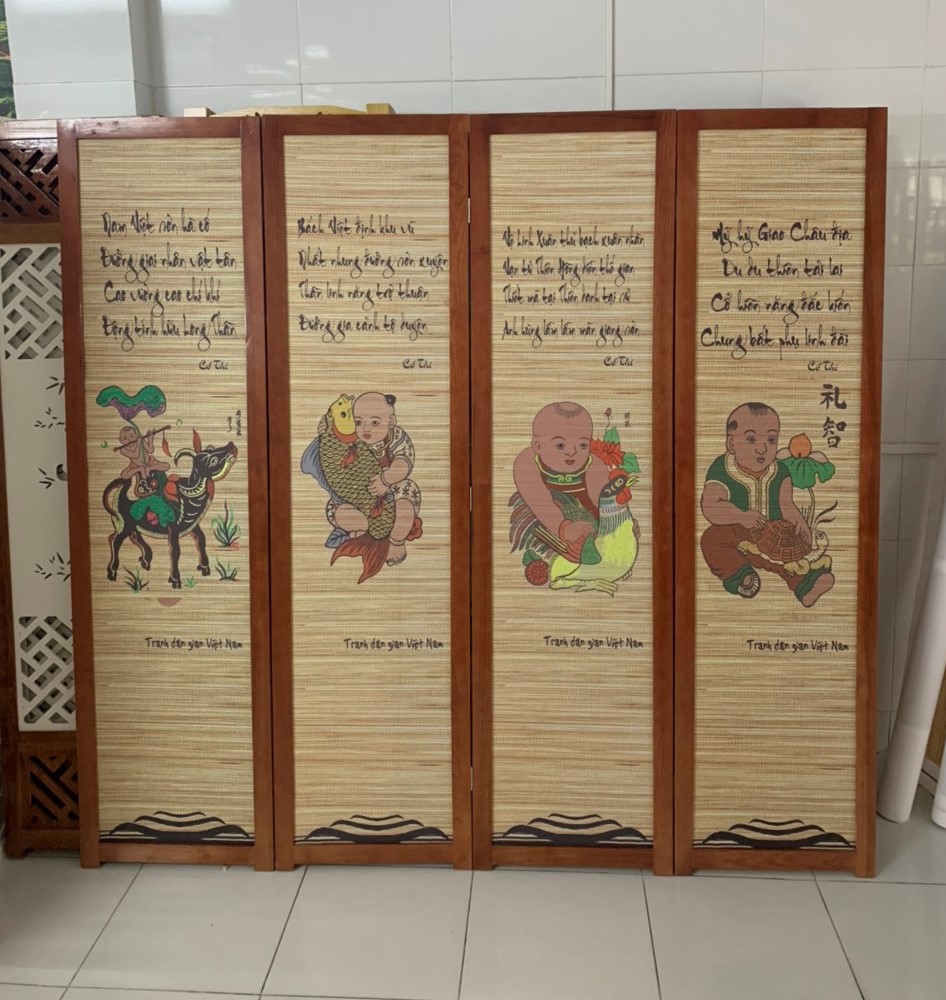 Nam Việt sơn hà cố
Đường giai nhân vật tân
Cao vương cao chí khí
Động tỉnh hữu Long Thần
Cổ Thi
Tranh dân gian Việt Nam
Bách Việt định khu vũ
Nhất nhung đường sơn xuyên
Thần linh năng trợ thuận
Đường gia cảnh tộ duyên
Cổ Thi
Tranh dân gian Việt Nam
Vệ linh Xuân thụ bạch vân nhàn
Vạn tử Thiên Hồng diễm thế gian
Thiết mã tại Thiên danh tại sử
Anh hùng lẫm lẫm mãn giang sơn
Cổ Thi
Tranh dân gian Việt Nam
Mỹ hỹ Giao Châu địa
Du du thiên tải lai
Cổ hiền năng đắc kiến
Chung bất phụ linh đài
Cổ Thi
礼
智
Tranh dân gian Việt Nam